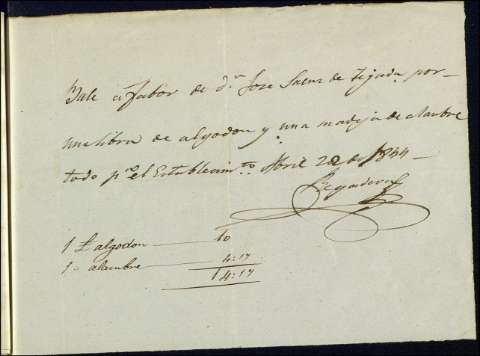 Bale a fabor de dn Jose Saenz de Tejada por
una libra de algodon y una madeja de alambre
todo pa el Establecimto. Abril 22 de 1844
1 £ algodon 10
1 " alambre 4:17
14:17